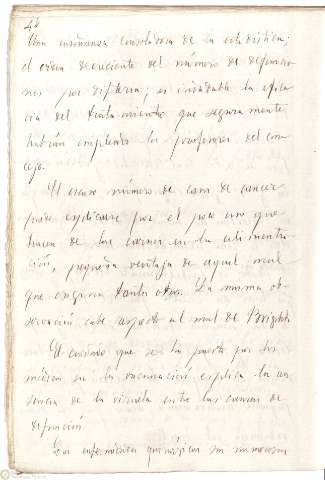 Una enseñanza consoladora de la estadistica;
el orden decreciente del número de defuncio
nes por difteria; es indudable la efica
cia del tratamiento que seguramente
habrán empleado los profesores del con
cejo.
El escaso número de casos de cancer
puede explicarse por el poco uso que
hacen de las carnes en la alimenta
ción, pequeña ventaja de aquel mal
que origina tantos otros. La misma ob
servación cabe respecto al mal de Bright.
El cuidado que se ha puesto por los
médicos en la vacunación explica la au
sencia de la viruela entre las causas de
defunción.
Las enfermedades quirúrgicas son numerosas